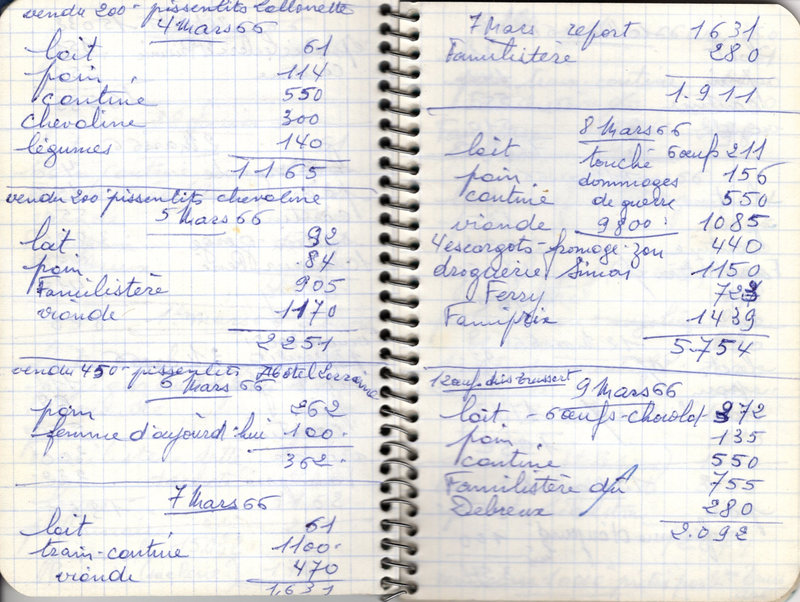 vendu 200 - pissenlits Lallouette
4 Mars 66
lait 61
pain 114
cantine 550
chevaline 300
légumes 140
1165
vendu 200 pissenlits chevaline
5 Mars 66
lait 92
pain 84
Familistère 905
viande 1170
2251
vendu 450 - pissenlits Hôtel Lorraine
6 Mars 66
pain 262
femme d'aujourd'hui 100
362
7 Mars 66
lait 61
train-cantine 1100
viande 470
1631
7 Mars report 1631
Familistère 280
1.911
8 Mars 66
lait 6 oeufs 211
pain 156
cantine 550
viande 1085
touché
dommages
de guerre
9800
4 escargots - fromage - 440
droguerie Simon 1150
Ferry 723
Familprix 1439
5.754
12 oeufs 
9 Mars 66
lait - 6 oeufs - chocolat 372
pain 135
cantine 550
Familistère dû 755
Debreux 280
2.092